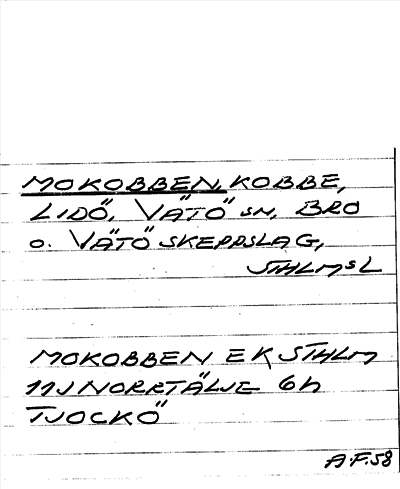 MOKOBBEN, KOBBE,
LIDÖ, VÄTÖ SN, BRO
O. VÄTÖ SKEPPSLAG,
STHLMSL
MOKOBBEN EK STHLM
11J NORRTÄLJE 6h
TJOCKÖ
A.F.58